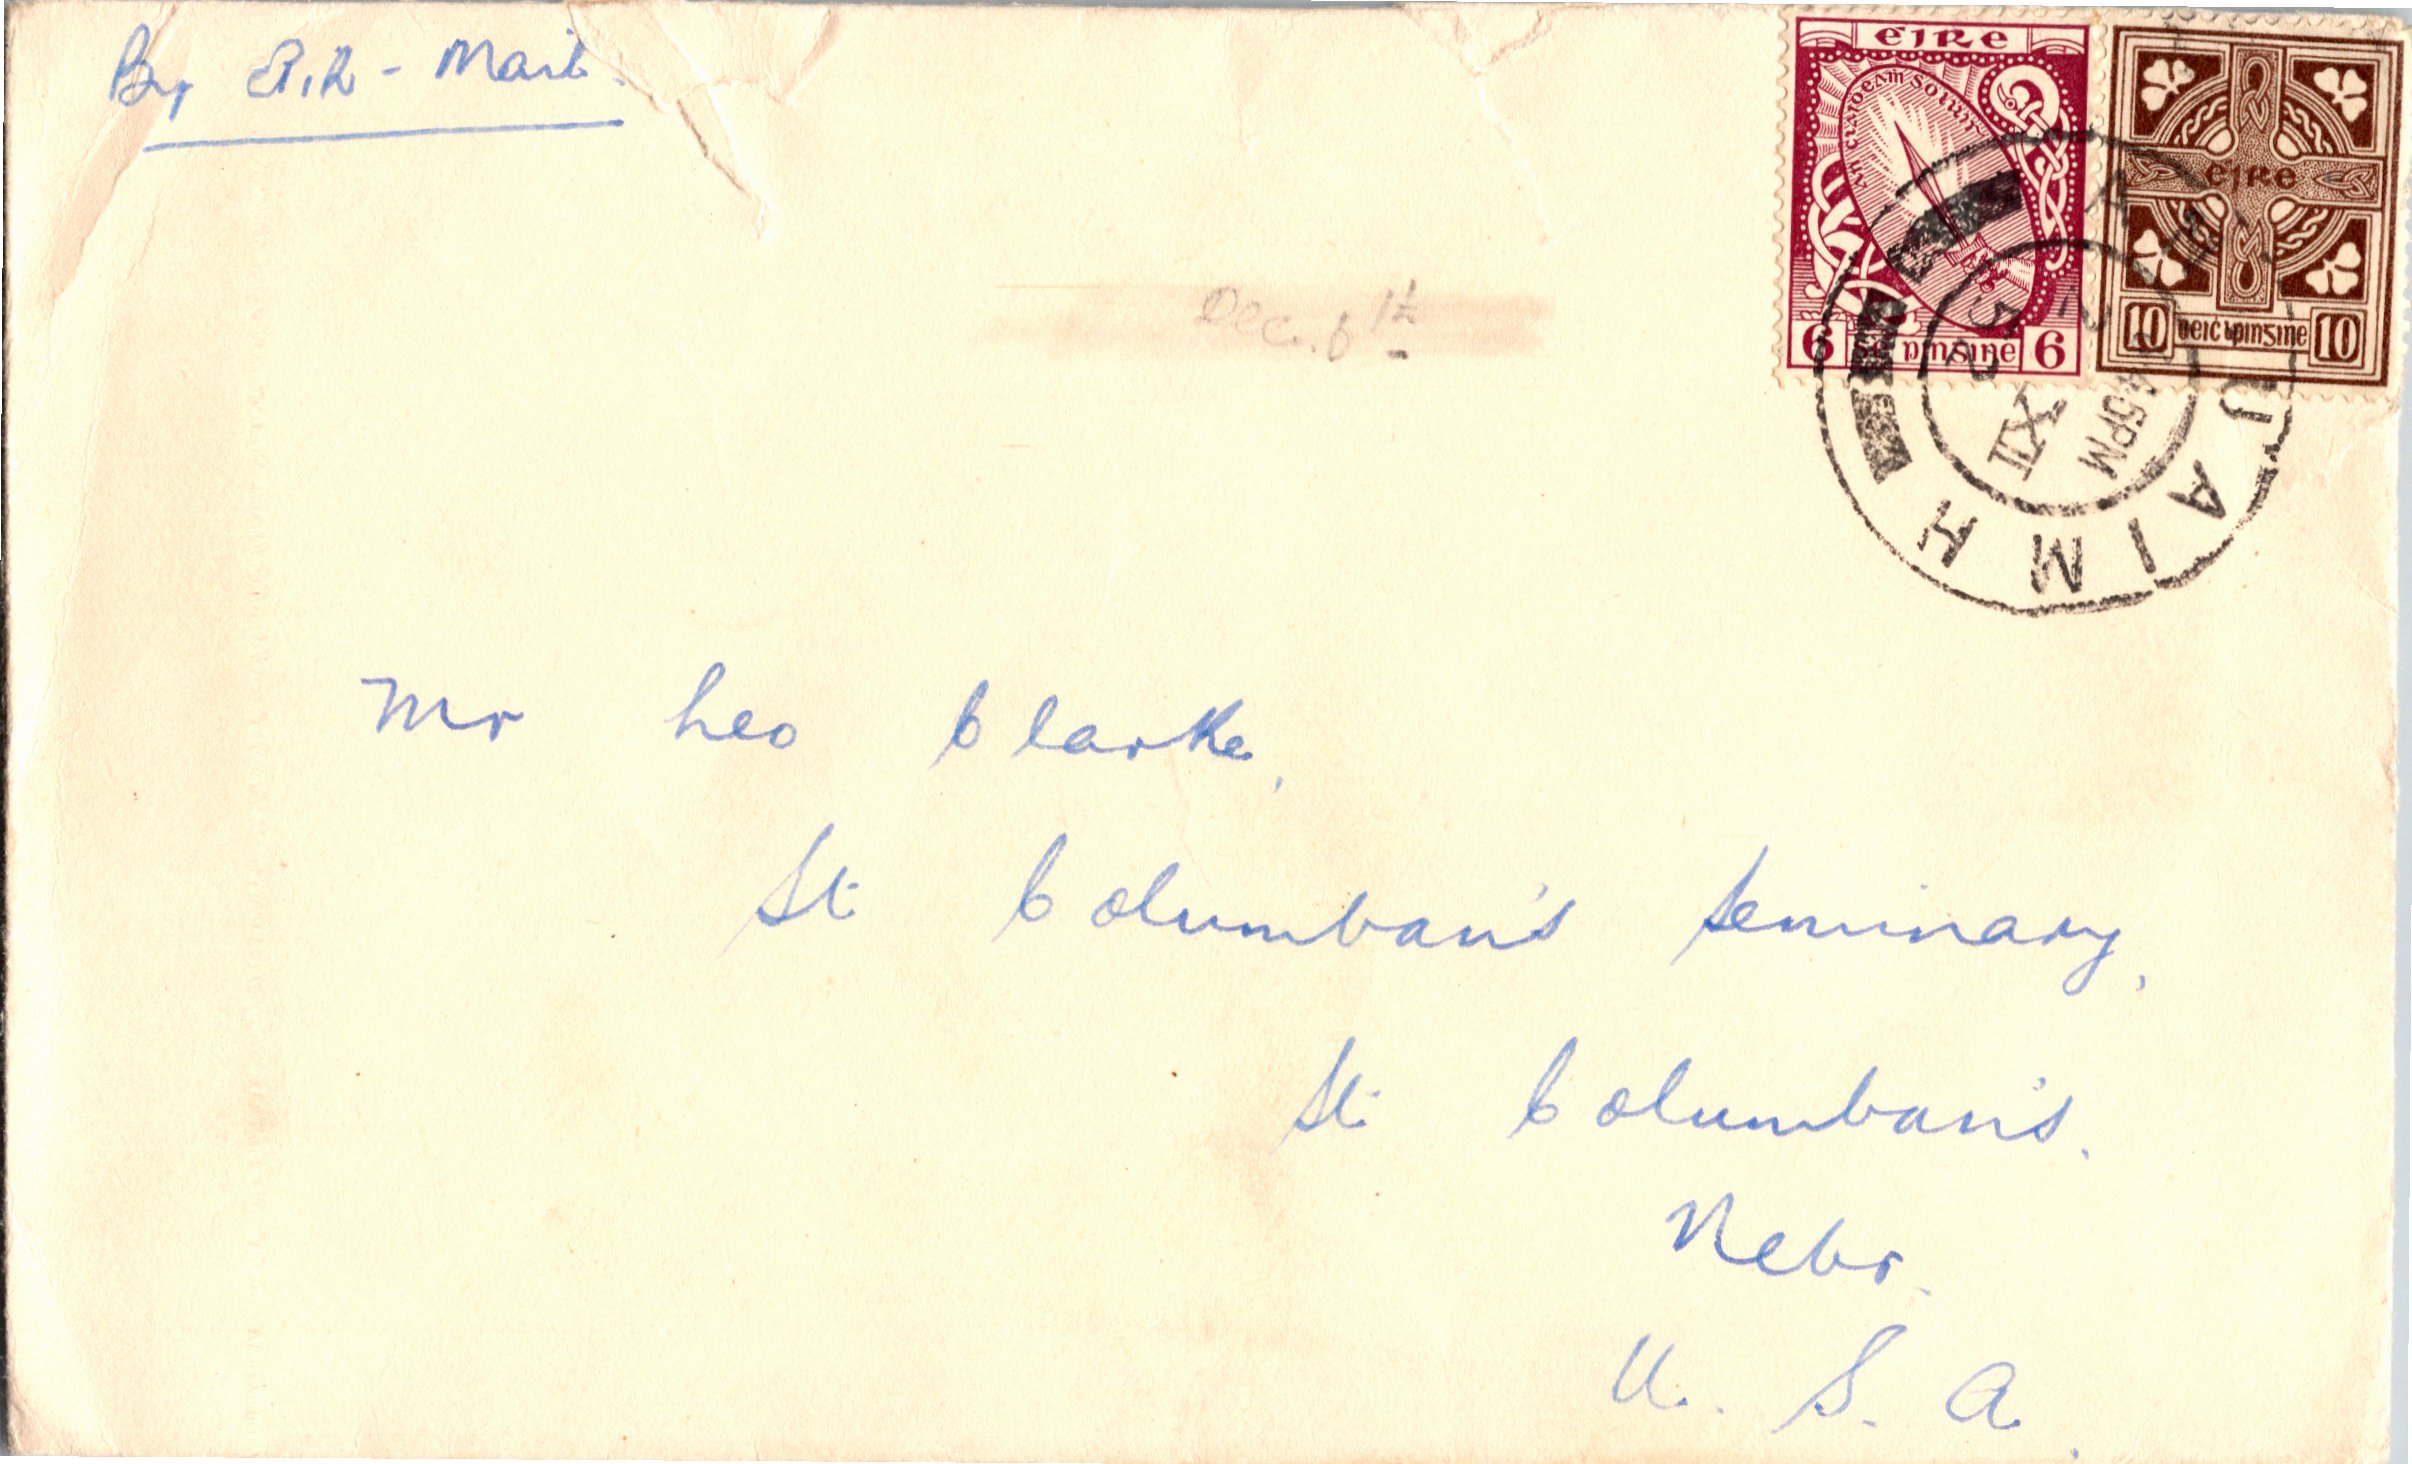 By Air-Mail.
ÉIRE
An Claiḋeaṁ Soluis
6 pinsine 6
éire
10 deiċ bpinsine 10
45PM
XII
52
UAIMH
Dec. 6th
Mr Leo Clarke,
St. Columban's Seminary,
St. Columban's.
Nebr.
U. S. A.